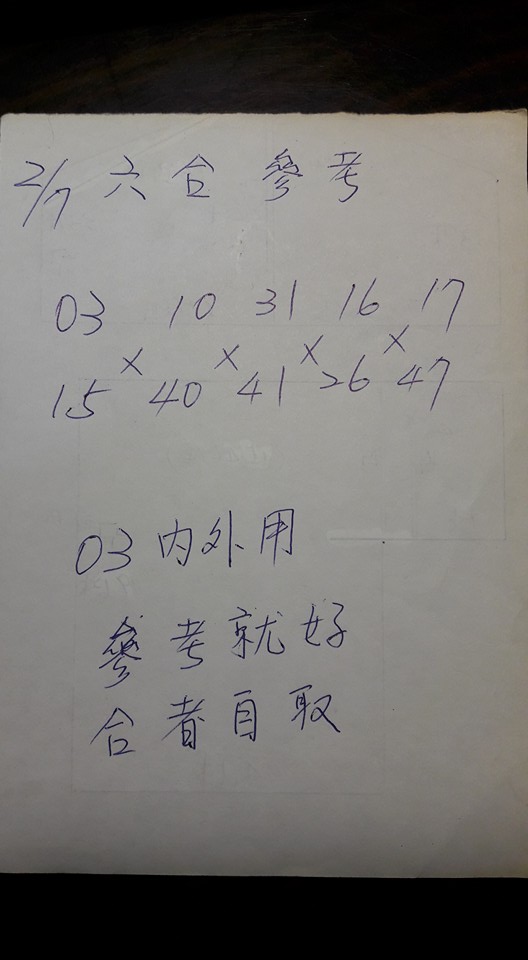 2/7 六合參考
03 10 31 16 17
× × × ×
15 40 41 26 47
03 內外用
參考就好
合者自取